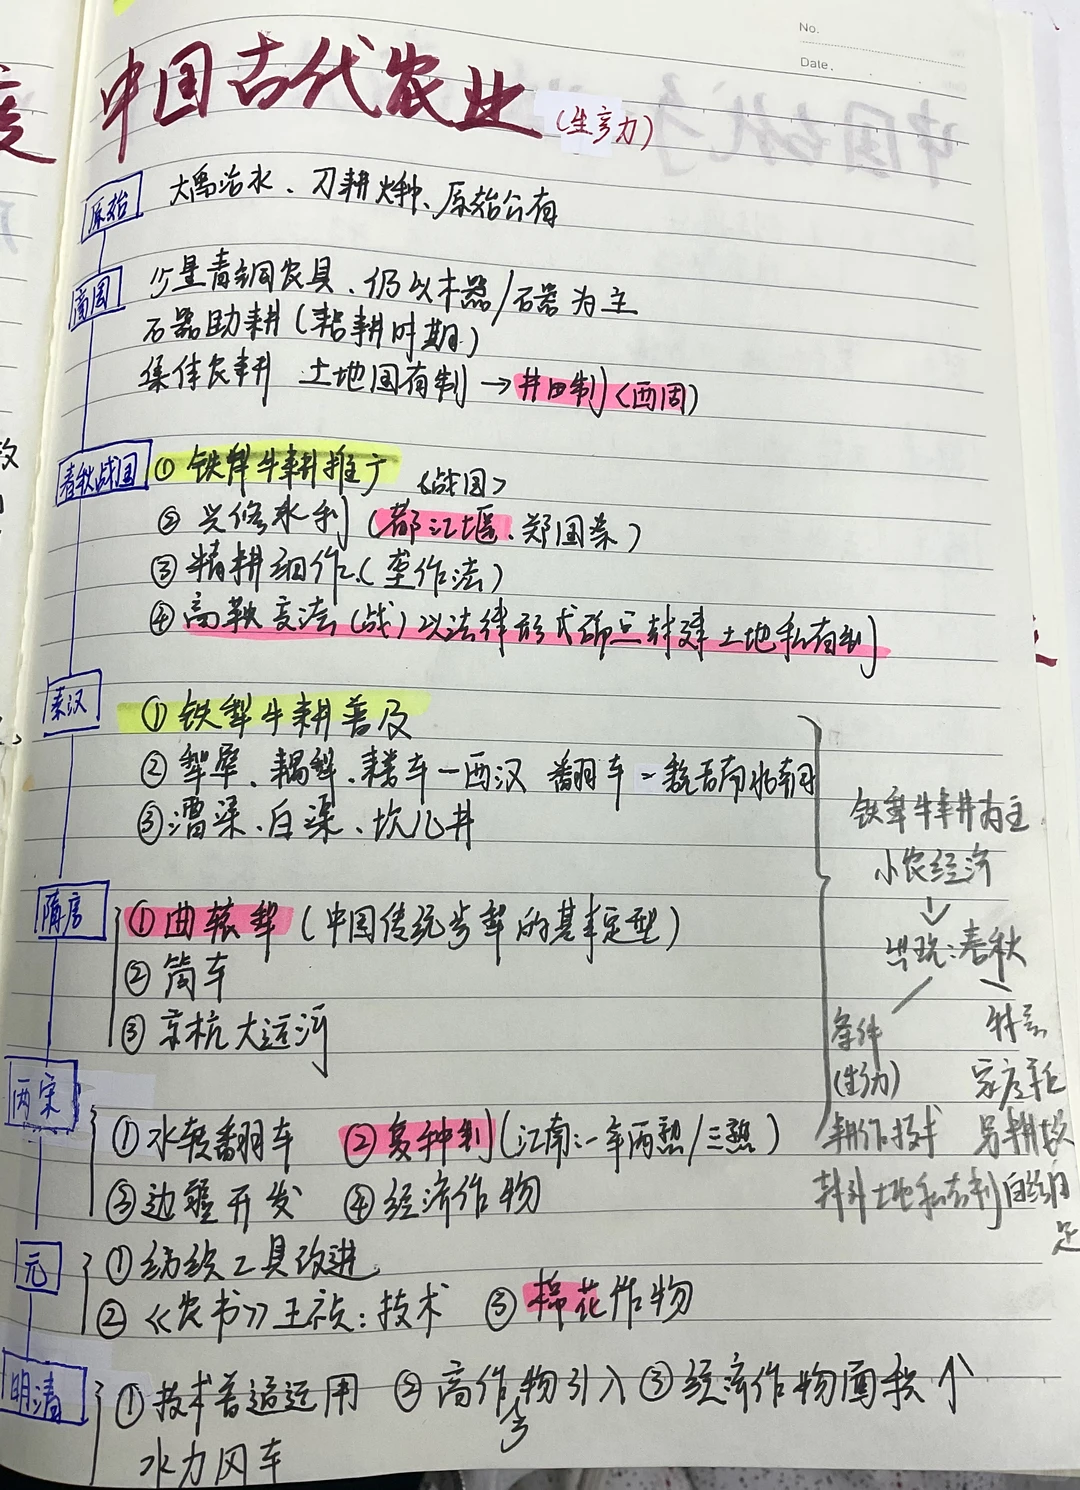 No.
Date.
中国古代农业(生产力)
原始 大禹治水、刀耕火种、原始公有
商周 少量青铜农具、仍以木器/石器为主
石器助耕(耜耕时期)
集体农耕 土地国有制→井田制(西周)
春秋战国 ①铁犁牛耕推广(战国)
②兴修水利(都江堰、郑国渠)
③精耕细作(垄作法)
④商鞅变法(战)以法律形式确立封建土地私有制
秦汉 ①铁犁牛耕普及
②犁壁、耦犁、耧车-西汉 翻车-魏晋南北朝
③漕渠、白渠、坎儿井
隋唐 ①曲辕犁(中国传统步犁的基本定型)
②筒车
③京杭大运河
两宋 ①水转翻车 ②复种制(江南:一年两熟/三熟)
③边疆开发 ④经济作物
元 ①纺织工具改进
②《农书》王祯:技术 ③棉花作物
明清 ①技术普遍运用 ②高产作物引入 ③经济作物面积↑
水力风车
铁犁牛耕为主
小农经济
出现:春秋
条件 特点
(生力) 家庭单位
耕作技术 男耕女织
封建土地私有制 自给自足